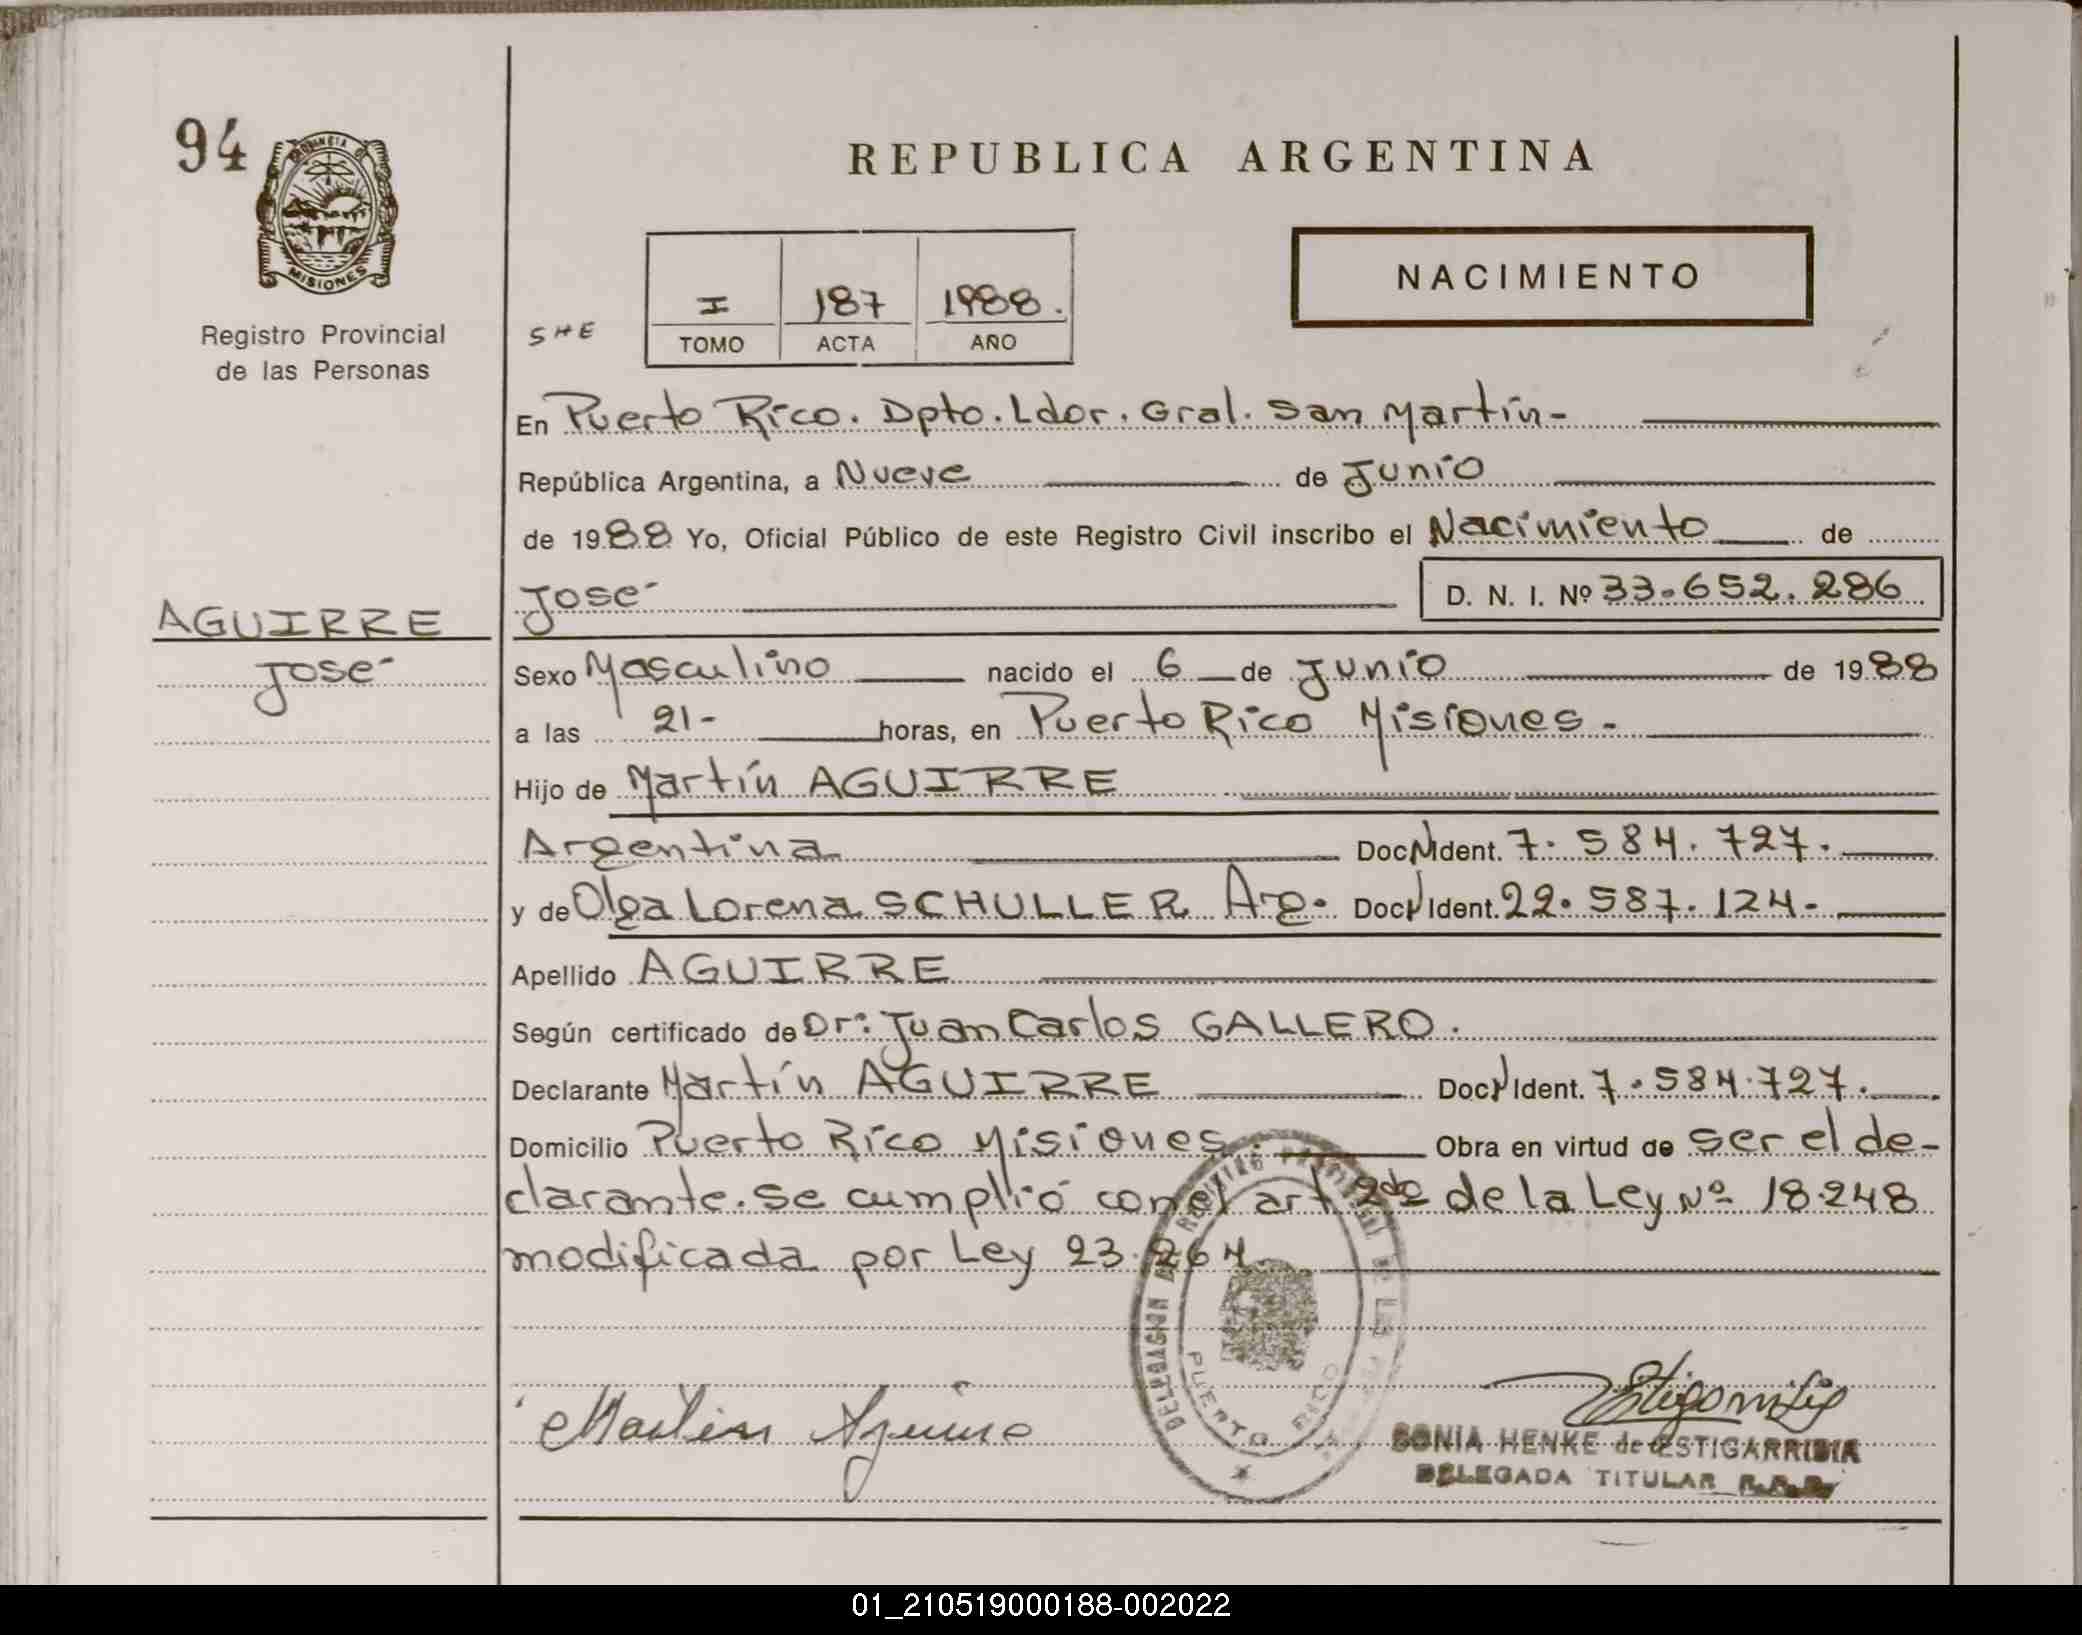 94
PROVINCIA D
MISIONES
Registro Provincial
de las Personas
REPUBLICA ARGENTINA
NACIMIENTO
SHE
I 187 1988.
TOMO ACTA AÑO
En Puerto Rico. Dpto. Ldor. Gral. San Martín-
República Argentina, a Nueve de Junio
de 1988 Yo, Oficial Público de este Registro Civil inscribo el Nacimiento de
José D. N. I. Nº 33.652.286
AGUIRRE
José
Sexo Masculino nacido el 6 de Junio de 1988
a las 21- horas, en Puerto Rico Misiones.
Hijo de Martín AGUIRRE
Argentina Doc. Ident. 7.584.727.
y de Olga Lorena SCHULLER Arg. Doc. Ident. 22.587.124-
Apellido AGUIRRE
Según certificado de Dr: Juan Carlos GALLERO.
Declarante Martín AGUIRRE Doc. Ident. 7.584.727.
Domicilio Puerto Rico Misiones. Obra en virtud de ser el de-
clarante. Se cumplió con el art 2do de la Ley Nº 18.248
modificada por Ley 23.264.
DELEGACION DEL REGISTRO PROVINCIAL DE LAS
PUERTO RICO
Martin Aguirre
SONIA HENKE de ESTIGARRIBIA
DELEGADA TITULAR R.P.P.
01_210519000188-002022